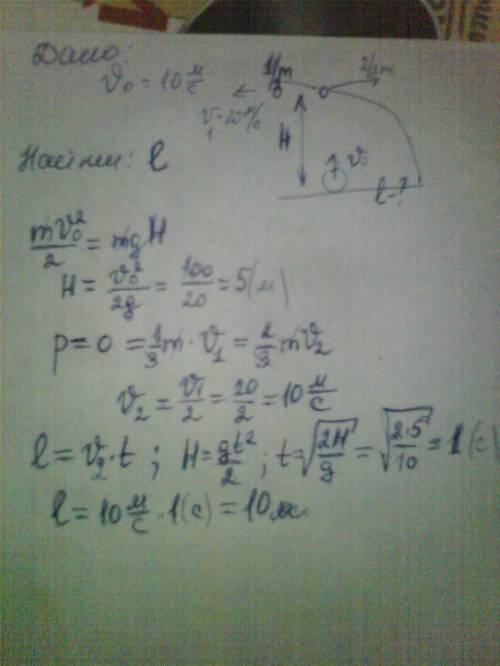 Дано:
v₀ = 10 м/с
1/3m
2/3m
v₁ = 20 м/с
H
v₀
l-?
Найти: l
mv₀²/2 = mgH
H = v₀²/2g = 100/20 = 5(м)
p = 0 = 1/3 m · v₁ = 2/3 mv₂
v₂ = v₁/2 = 20/2 = 10 м/с
l = v₂ · t ; H = gt²/2 ; t = √(2H/g) = √(2·5/10) = 1(с)
l = 10 м/с · 1(с) = 10м